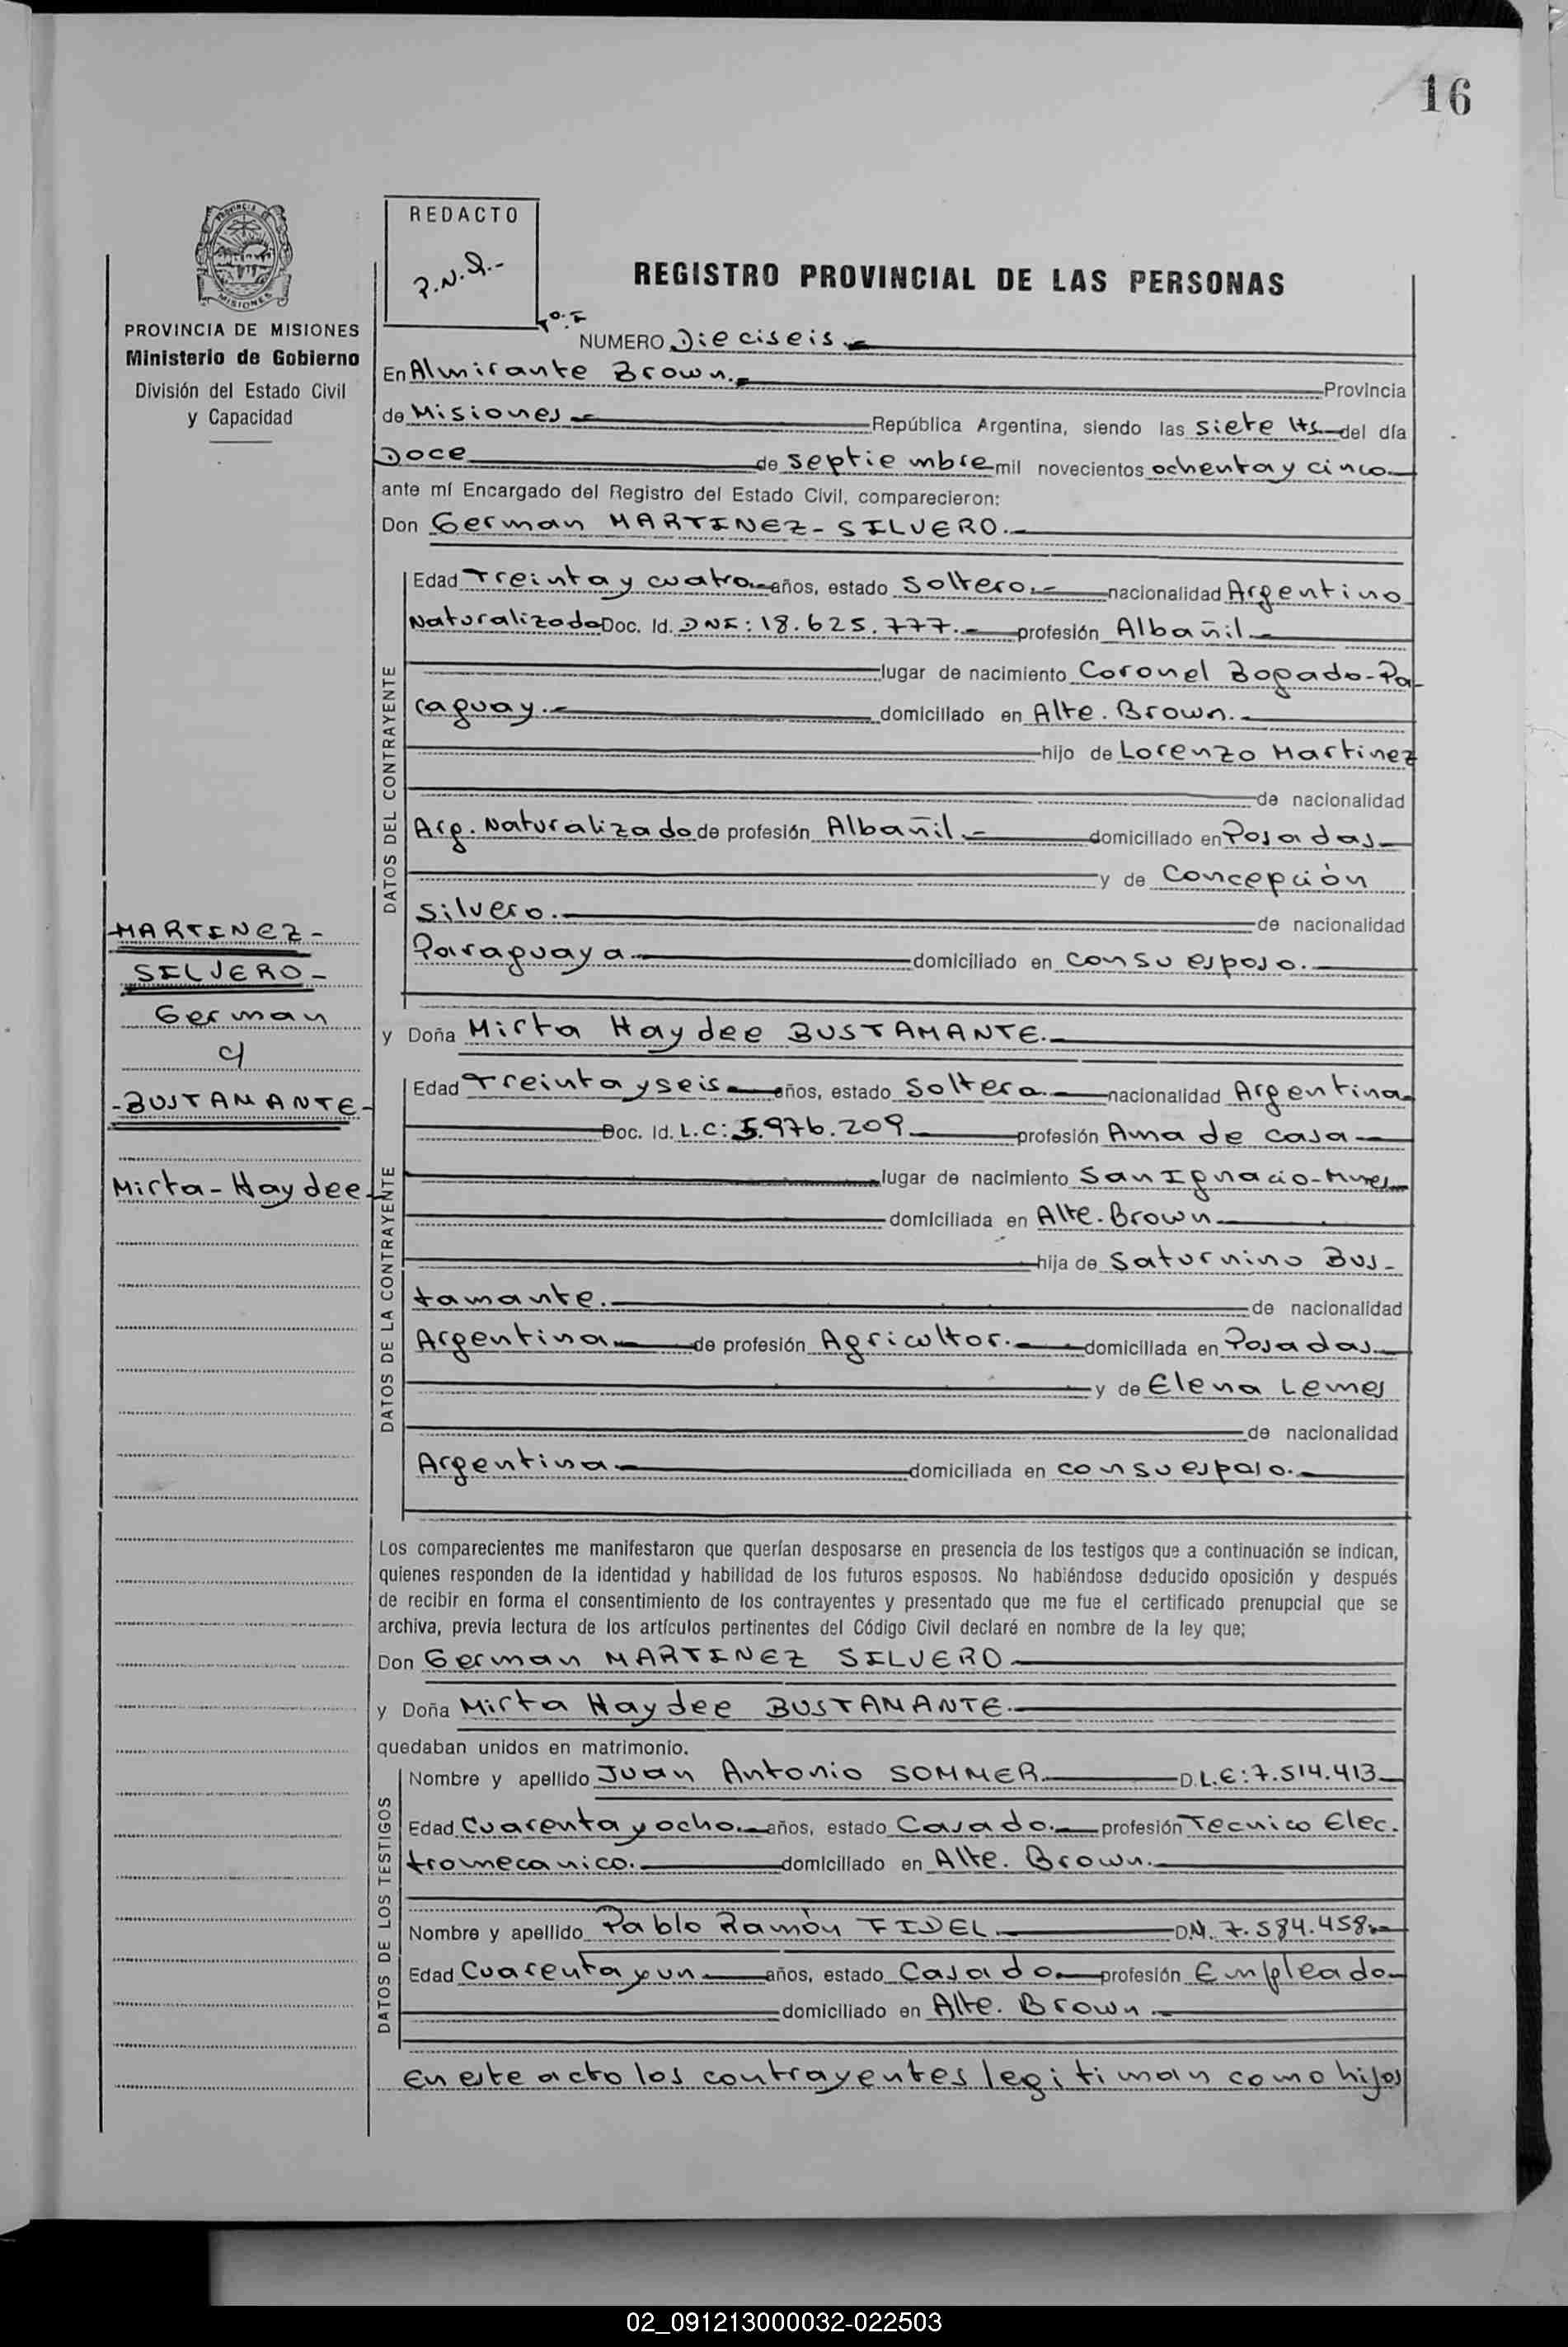 16
REDACTO
P.N.Q.-
REGISTRO PROVINCIAL DE LAS PERSONAS
Tº: I
NUMERO Dieciseis.-
PROVINCIA DE MISIONES
Ministerio de Gobierno
División del Estado Civil
y Capacidad
En Almirante Brown.- Provincia
de Misiones.- República Argentina, siendo las siete Hs. del día
Doce de septiembre mil novecientos ochenta y cinco
ante mí Encargado del Registro del Estado Civil, comparecieron:
Don German MARTINEZ-SILVERO.-
DATOS DEL CONTRAYENTE
Edad Treinta y cuatro.- años, estado Soltero.- nacionalidad Argentino
Naturalizado Doc. Id. DNI: 18.625.777.- profesión Albañil.-
lugar de nacimiento Coronel Bogado-Pa-
raguay.- domiciliado en Alte. Brown.-
hijo de Lorenzo Martinez
de nacionalidad
Arg. Naturalizado de profesión Albañil.- domiciliado en Posadas
y de Concepción
Silvero.- de nacionalidad
Paraguaya.- domiciliado en con su esposo.-
MARTINEZ-
SILVERO-
German
c/
-BUSTAMANTE-
Mirta-Haydee-
y Doña Mirta Haydee BUSTAMANTE.-
DATOS DE LA CONTRAYENTE
Edad Treinta y seis.- años, estado Soltera.- nacionalidad Argentina
Doc. Id. L.C: 5.976.209 profesión Ama de casa
lugar de nacimiento San Ignacio-Mnes.
domiciliada en Alte. Brown
hija de Saturnino Bus-
tamante.- de nacionalidad
Argentina.- de profesión Agricultor.- domiciliada en Posadas
y de Elena Lemes
de nacionalidad
Argentina.- domiciliada en con su esposo.-
Los comparecientes me manifestaron que querían desposarse en presencia de los testigos que a continuación se indican,
quienes responden de la identidad y habilidad de los futuros esposos. No habiéndose deducido oposición y después
de recibir en forma el consentimiento de los contrayentes y presentado que me fue el certificado prenupcial que se
archiva, previa lectura de los artículos pertinentes del Código Civil declaré en nombre de la ley que;
Don German MARTINEZ SILVERO
y Doña Mirta Haydee BUSTAMANTE.-
quedaban unidos en matrimonio.
DATOS DE LOS TESTIGOS
Nombre y apellido Juan Antonio SOMMER. D.L.E: 7.514.413
Edad Cuarenta y ocho.- años, estado Casado.- profesión Tecnico Elec.
tromecanico. domiciliado en Alte. Brown.-
Nombre y apellido Pablo Ramón FIDEL D.N. 7.584.458.-
Edad Cuarenta y un años, estado Casado.- profesión Empleado
domiciliado en Alte. Brown.-
En este acto los contrayentes legitiman como hijos
02_091213000032-022503